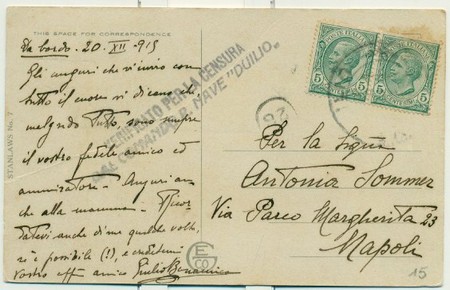 THIS SPACE FOR CORRESPONDENCE
Da bordo. 20. XII - 915
Gli auguri che vi invio con
tutto il cuore vi dicano che,
malgrado tutto sono sempre
il vostro fedele amico ed
ammiratore - Auguri an
che alla mamma - Ricor
datevi anche di me qualche volta,
se è possibile (!), e credetemi
vostro aff amico Giulio
VERIFICATO PER LA CENSURA
COMANDANTE R. NAVE "DUILIO"
STANLAWS No. 7
POSTE ITALIANE
5 5
POSTE ITALIANE
5 5
Per la Sigra
Antonia Sommer
Via Parco Margherita 23
Napoli
EG
Co
15